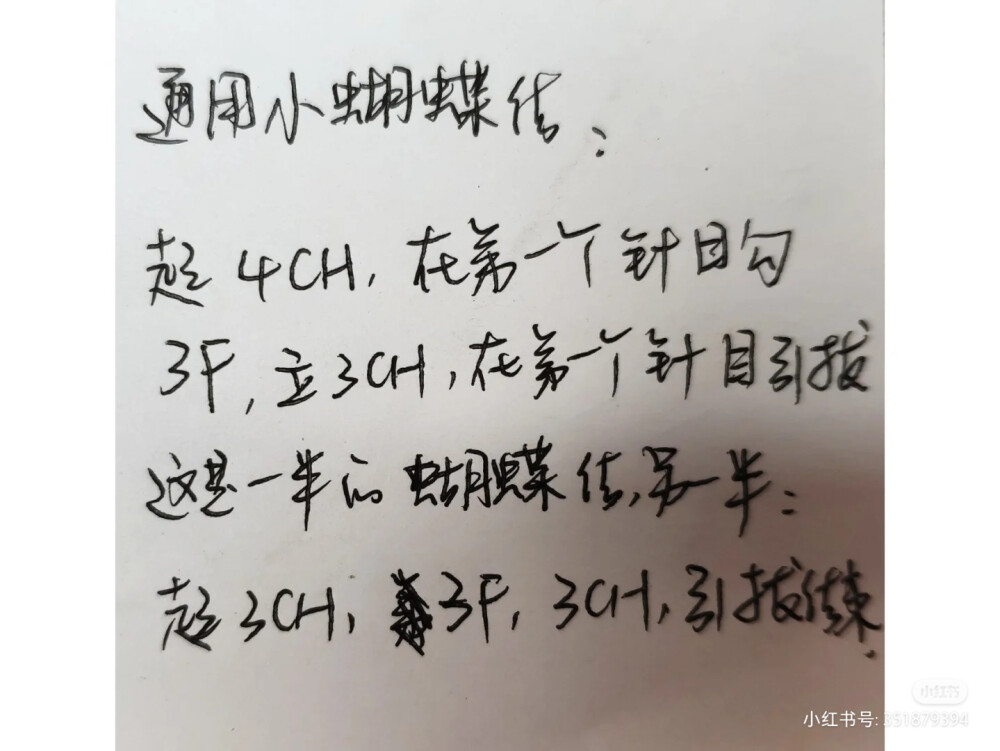 通用小蝴蝶结：
起4CH，在第一个针目勾
3F，立3CH，在第一个针目引拔
这是一半的蝴蝶结，另一半：
起3CH，3F，3CH，引拔结束.
小红书
小红书号: 351879394